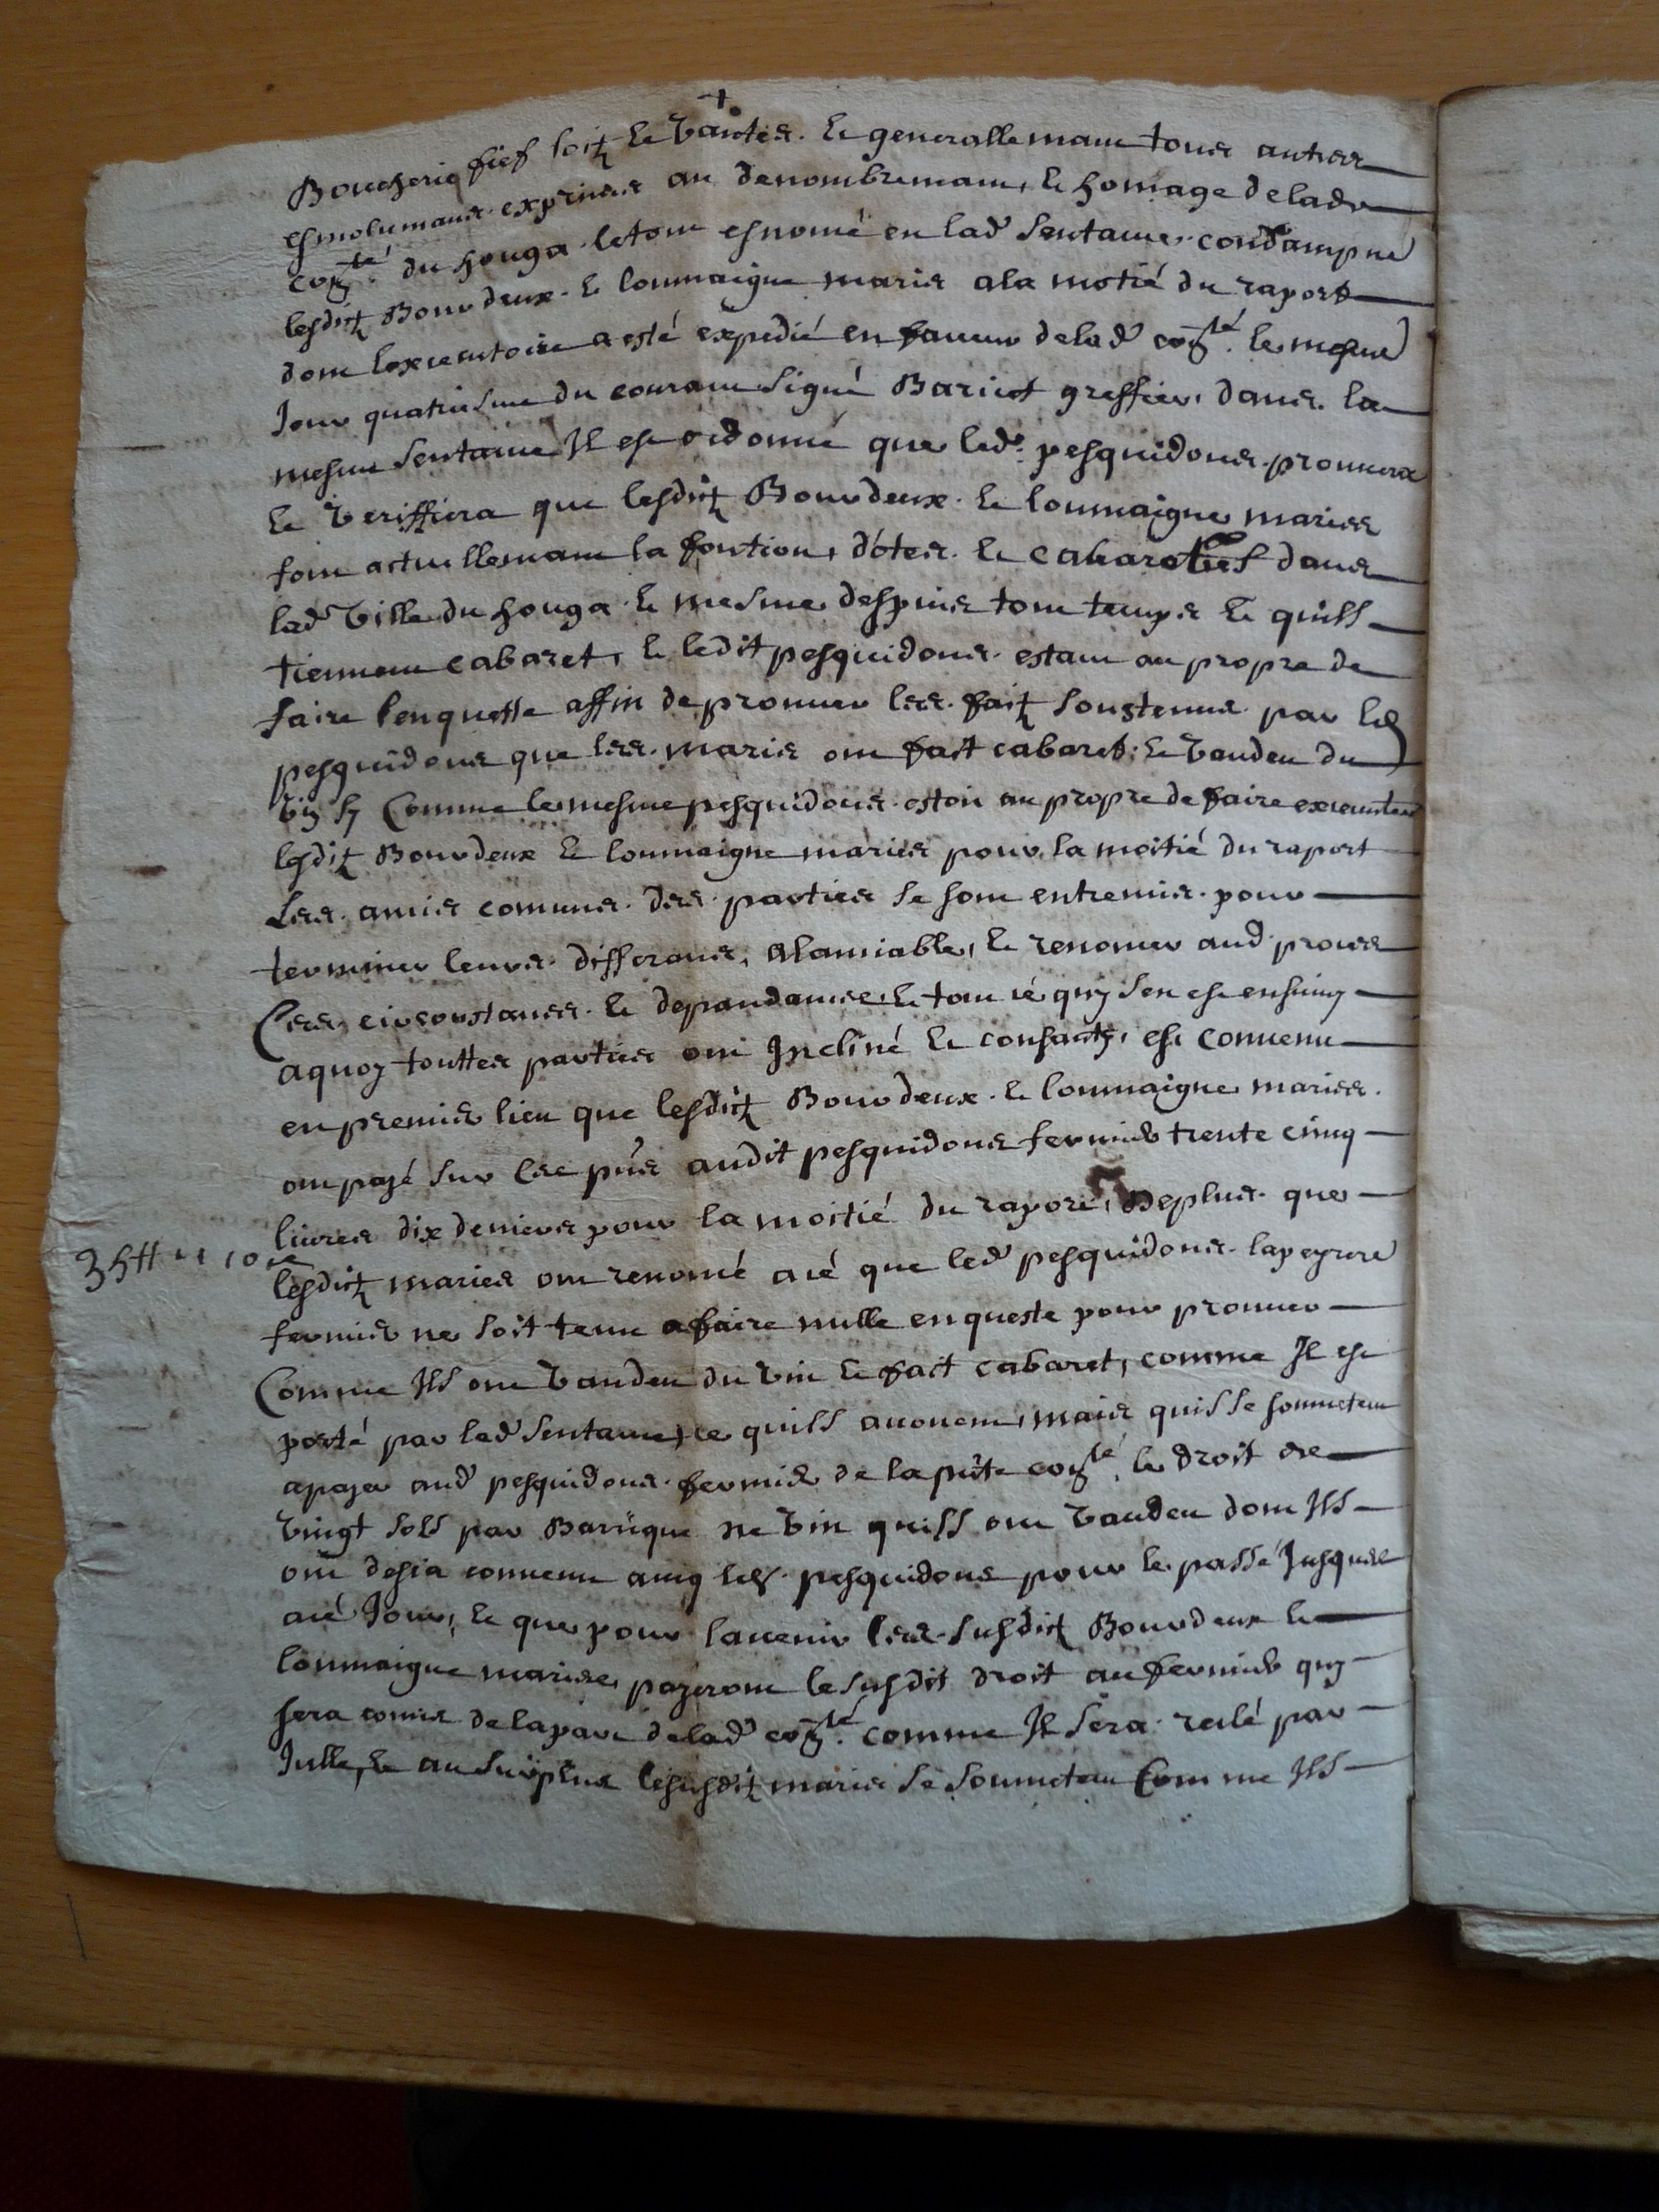 +
Boucherie fief loitz & vantes. & generallemant tous autres
esmolumans exprimes au denombremant, & homage de lad
co͞m.té du houga. letout esnomé en lad sentance. condampné
lesditz Bourdeux. & loumaigne maries ala motié du raport
dont lexecutoire a esté expedié en faveur delad co͞m.té le mesme
Jour quatriesme du courant signé Bariet greffier, dans la
mesme sentance Il est ordonné que led. pesquidous prouvera
& veriffiera que lesditz Bourdeux. & loumaigne maries
font actuellemant la fontion, d'otes. & cabaretiers dans
lad ville du houga. & mesme despuis tout temps & quils
tiennent cabaret, & ledit pesquidous estant au propre de
faire lenqueste affin de prouver les faitz soustenus par led
pesquidous que les maries ont fait cabaret. & vandeu du
vin Comme le mesme pesquidous estoit au propre de faire executer
lesditz Bourdeux & loumaigne maries pour la moitié du raport
Les amis comuns des parties se sont entremis pour
terminer leurs differans, alamiable, & renoncer aud proces
Ces circonstances. & depandances & tout cé quy sen est ensuivy
aquoy touttes parties ont Incliné & consanty, est convenu
en premier lieu que lesditz Bourdeux. & loumaigne maries
ont payé sur les pñs audit pesquidous fermier trente cinq
livres dix deniers pour la moitié du raport, deplus que
35 ₶ " 10 d
lesditz maries ont renoncé acé que led pesquidous lapeyrere
fermier ne soit tenu afaire nulle enqueste pour prouver
Comme Ils ont vandeu du vin & fait cabaret, comme Il est
porté par lad sentance, ce quils avouent, mais quils se soumetent
apayer aud pesquidous fermier de la pñte co͞m.té, le droit de
vingt sols par Barrique de vin quils ont vandeu dont Ils
ont desia convenu avec led. pesquidous pour le passé Jusques
acé Jour, & que pour lavenir les susditz Bourdeux &
loumaigne maries, payeront le susdit droit au fermier quy
sera comis de lapart delad co͞m.té comme Il sera reilé par
Iclle, & au surplus lesusditz maries se soumetent Comme Ils